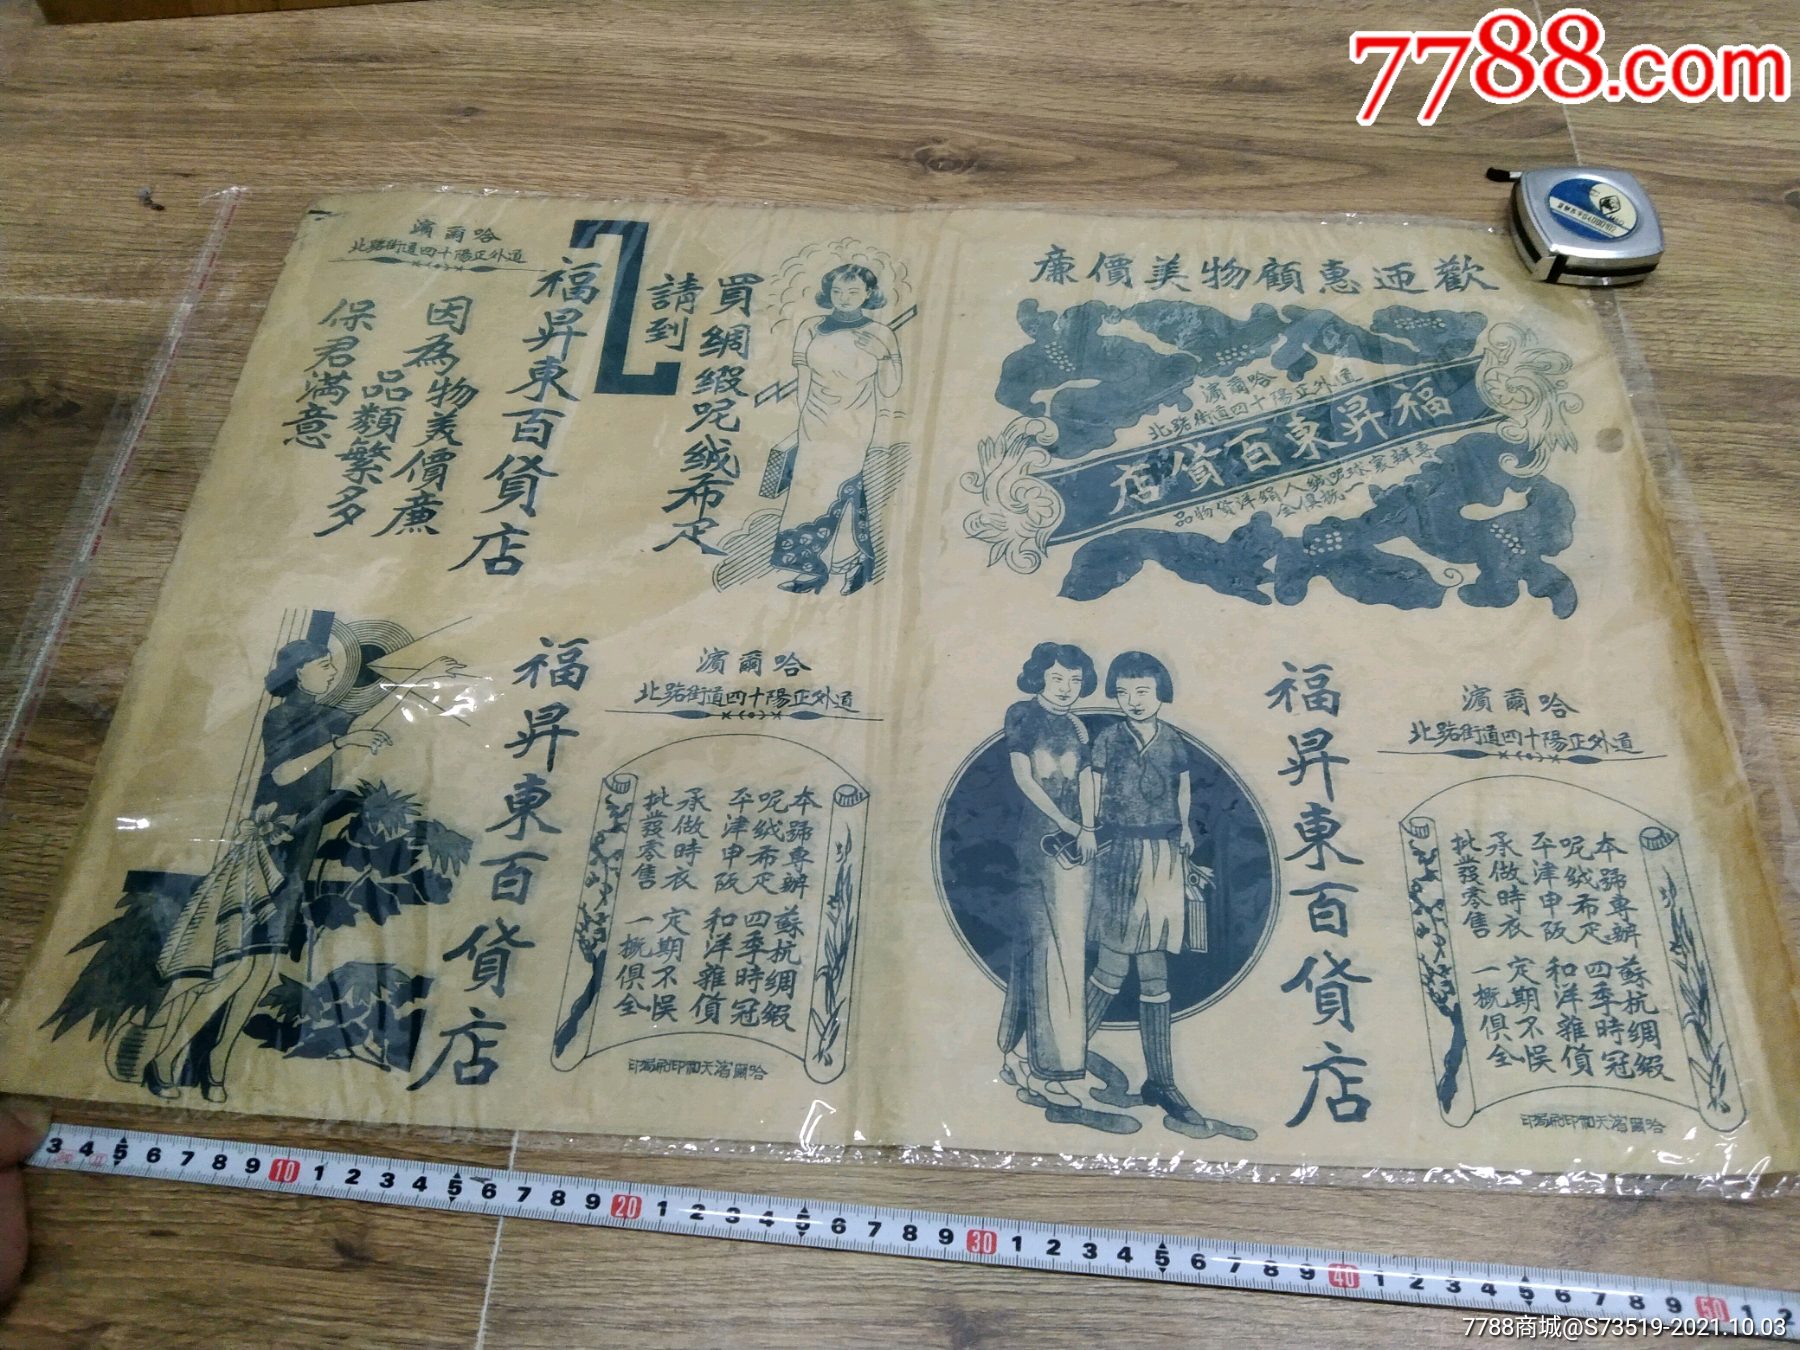 7788.com
哈爾濱
道外正陽十四道街路北
買綢緞呢絨布疋
請到
福昇東百貨店
因為物美價廉
品類繁多
保君滿意
歡迎惠顧物美價廉
哈爾濱
道外正陽十四道街路北
福昇東百貨店
福昇東百貨店
哈爾濱
道外正陽十四道街路北
本號專辦 蘇杭綢緞
呢絨布疋 四季時冠
平津申阪 和洋雜貨
承做時衣 定期不悞
批發零售 一概俱全
哈爾濱天和印刷局印
福昇東百貨店
哈爾濱
道外正陽十四道街路北
本號專辦 蘇杭綢緞
呢絨布疋 四季時冠
平津申阪 和洋雜貨
承做時衣 定期不悞
批發零售 一概俱全
哈爾濱天和印刷局印
3 4 5 6 7 8 9 10 1 2 3 4 5 6 7 8 9 20 1 2 3 4 5 6 7 8 9 30 1 2 3 4 5 6 7 8 9 40 1 2 3 4 5 6 7 8 9 50 1 2
7788商城@S73519-2021.10.03